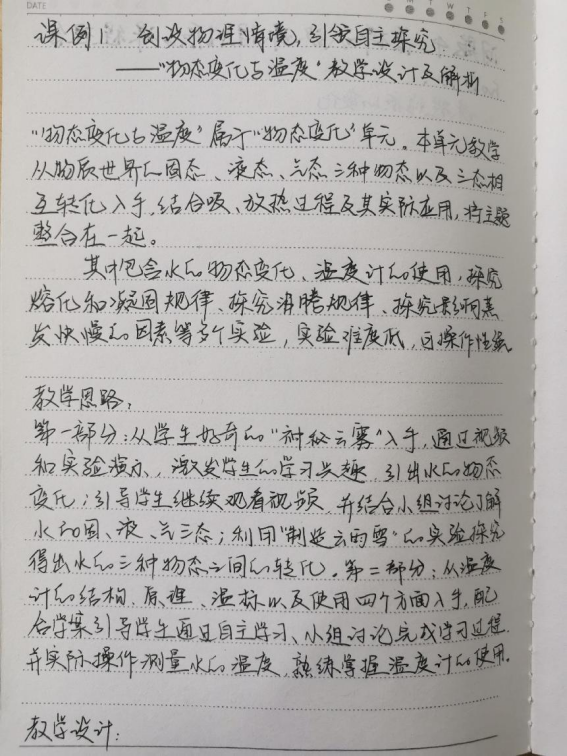 DATE
M T W T F S
课例1 创设物理情境，引领自主探究
——“物态变化与温度”教学设计及解析
“物态变化与温度”属于“物态变化”单元。本单元教学
从物质世界的固态、液态、气态三种物态以及三态相
互转化入手，结合吸、放热过程及其实际应用，将主题
整合在一起。
其中包含水的物态变化、温度计的使用，探究
熔化和凝固规律、探究沸腾规律、探究影响蒸
发快慢的因素等多个实验，实验难度低，可操作性强
教学思路：
第一部分：从学生好奇的“神秘云雾”入手，通过视频
和实验演示，激发学生的学习兴趣，引出水的物态
变化；引导学生继续观看视频，并结合小组讨论了解
水的固、液、气三态；利用“制造云雨雪”的实验探究
得出水的三种物态之间的转化。第二部分：从温度
计的结构、原理、温标以及使用四个方面入手，配
合学案引导学生通过自主学习、小组讨论完成学习过程，
并实际操作测量水的温度，熟练掌握温度计的使用。
教学设计：